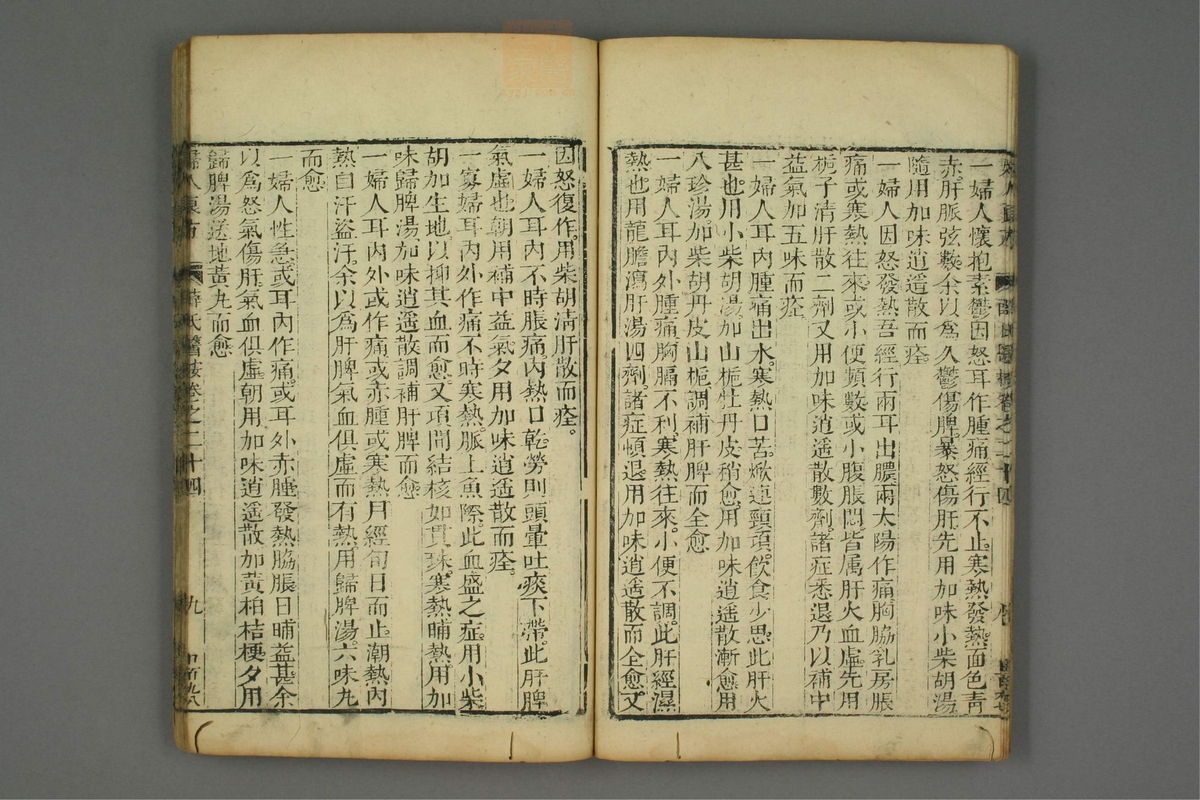 一婦人懷抱素鬱因怒耳作腫痛經行不止寒熱發熱面色青
赤肝脈弦數余以爲久鬱傷脾暴怒傷肝先用加味小柴胡湯
隨用加味逍遥散而痊
一婦人因怒發熱吾經行兩耳出膿兩太陽作痛胸脇乳房脹
痛或寒熱往來或小便頻數或小腹脹悶皆属肝火血虛先用
梔子清肝散二劑又用加味逍遥散數劑諸症悉退乃以補中
益氣加五味而痊
一婦人耳內腫痛出水寒熱口苦焮連頸項飲食少思此肝火
甚也用小柴胡湯加山梔牡丹皮稍愈用加味逍遥散漸愈用
八珍湯加柴胡丹皮山梔調補肝脾而全愈
一婦人耳內外腫痛胸膈不利寒熱往來小便不調此肝經濕
熱也用龍膽瀉肝湯四劑諸症頓退用加味逍遥散而全愈又
因怒復作用柴胡清肝散而痊。
一婦人耳內不時脹痛內熱口乾勞則頭暈吐痰下帶此肝脾
氣虛也朝用補中益氣夕用加味逍遥散而痊。
一寡婦耳內外作痛不時寒熱脈上魚際此血盛之症用小柴
胡加生地以抑其血而愈又項間結核如貫珠寒熱晡熱用加
味歸脾湯加味逍遥散調補肝脾而愈
一婦人耳內外或作痛或赤腫或寒熱月經旬日而止潮熱內
熱自汗盜汗余以爲肝脾氣血俱虛而有熱用歸脾湯六味丸
而愈
一婦人性急或耳內作痛或耳外赤腫發熱脇脹日晡益甚余
以爲怒氣傷肝氣血俱虛朝用加味逍遥散加黃柏桔梗夕用
歸脾湯送地黃丸而愈
婦人良方 薛氏醫按卷之二十四 九